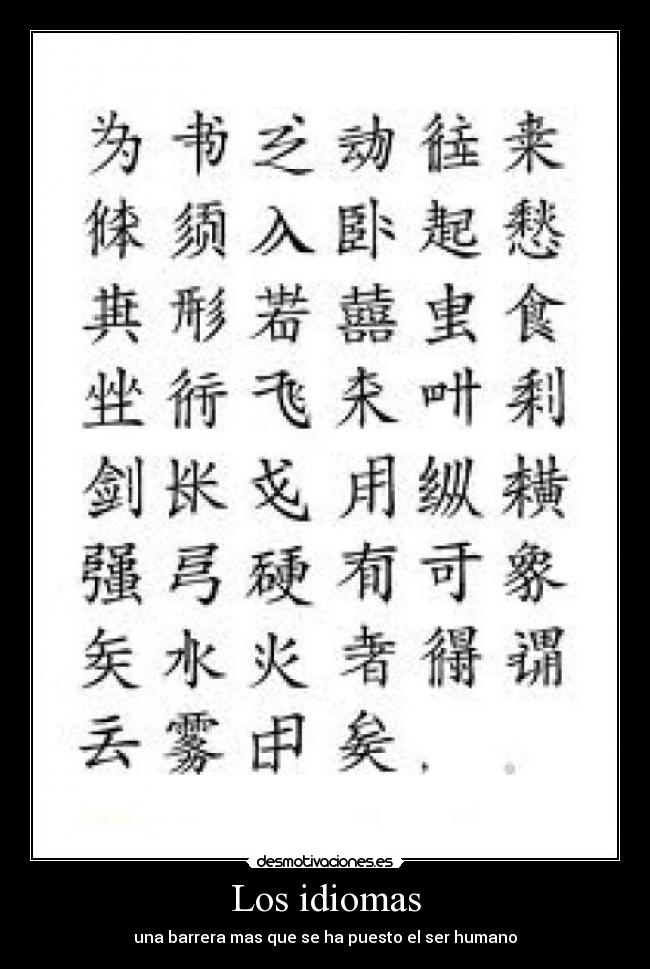 为 书 之 动 往 来
体 须 入 卧 起 愁
其 形 若 喜 虫 食
坐 行 飞 木 叶 利
剑 长 戈 月 纵 横
强 弓 硬 有 可 象
矢 水 火 者 得 谓
云 雾 日 矣 , 。
desmotivaciones.es
Los idiomas
una barrera mas que se ha puesto el ser humano